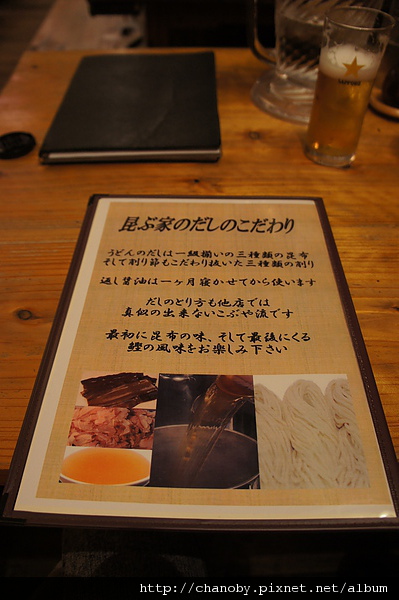 昆ぶ家のだしのこだわり
うどんのだしは一級揃いの三種類の昆布
そして削り節もこだわり抜いた三種類の削り
返し醤油は一ヶ月寝かせてから使います
だしのとり方も他店では
真似の出来ないこぶや流です
最初に昆布の味、そして最後にくる
鰹の風味をお楽しみ下さい
SAPPORO
http://chanoby.pixnet.net/album